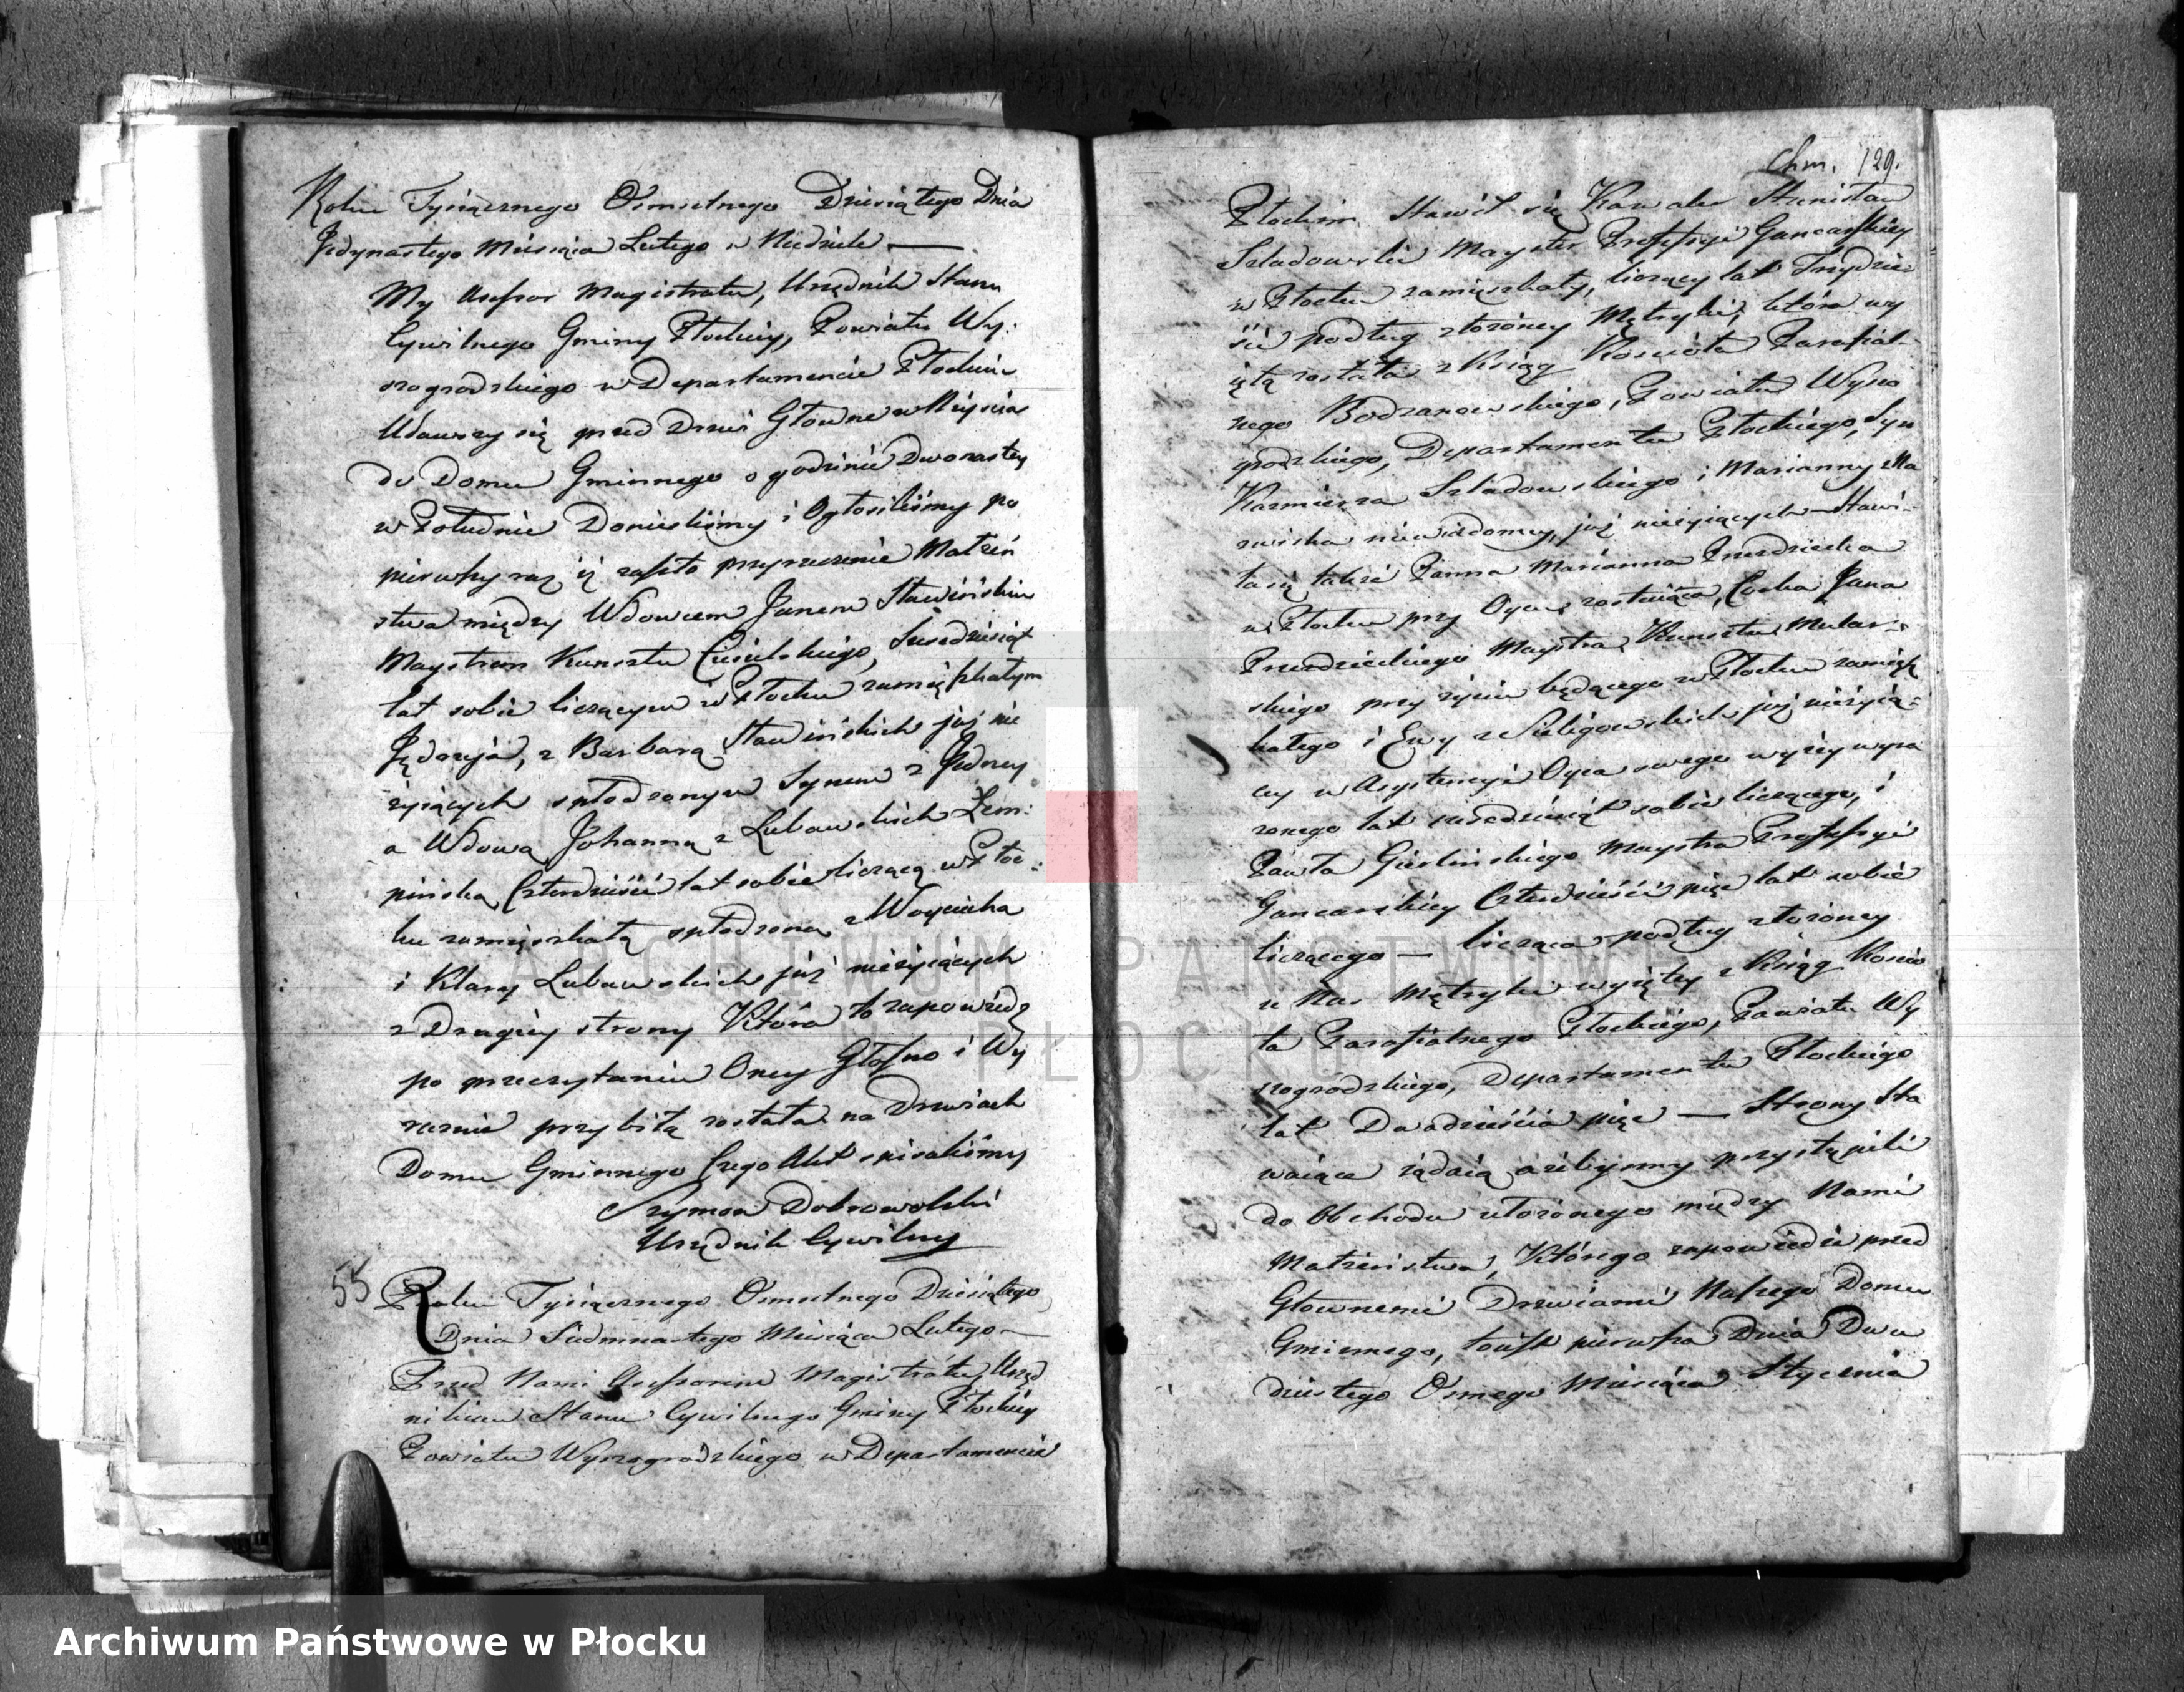 Roku Tysiącznego Osmsetnego Dziesiątego Dnia
Jedynastego Miesiąca Lutego w Niedziele —
My Assessor Magistratu, Urzędnik Stanu
Cywilnego Gminy Płockiey, Powiatu Wy:
szogrodzkiego w Departamencie Płockim
Udawszy się przed Drzwi Głowne w Weyścia
do Domu Gminnego o godzinie Dwonastey
w Południe Donieśliśmy i Ogłosiliśmy po
pierwszy raz iż zaszło przyrzeczenie Małżeń
stwa między Wdowcem Janem Sławińskim
Maystrem Kunsztu Ciesielskiego, Sześdziesiąt
lat sobie liczącym w Płocku zamięszkałym
Jędrzeja, z Barbarą Sławińskich już nie
żyiących spłodzonym Synem z Jedney
a Wdową Johanną z Lubawskich Lem:
pińską Czterdzieści lat sobie liczącą w Płoc:
ku zamięszkałą spłodzoną z Woyciecha
i Klary Lubawskich już nieżyiących
z Drugiey strony Która to zapowiedź
po przeczytaniu Oney Głośno i Wy
raznie przybitą została na Drzwiach
Domu Gminnego Czego Akt spisaliśmy
Szymon Dobrowolski
Urzędnik Cywilny
55 Roku Tysiącznego Osmsetnego Dziesiątego
Dnia Siedmnastego Miesiąca Lutego —
Przed Nami Assessorem Magistratu, Urzęd
nikiem Stanu Cywilnego Gminy Płockiey
Powiatu Wyszogrodzkiego w Departamencie
Chm. 129.
Płockim Stawił się Kawaler Stanisław
Szladowski Mayster Professyi Gancarskiey
w Płocku zamięszkały, liczący lat Trzydzie:
ści podług złożoney Metryki, która wy
iętą została z Ksiąg Kościoła Parafial
nego Bodzanowskiego, Powiatu Wyszo
grodzkiego, Departamentu Płockiego, Syn
Kazmierza Szladowskiego i Marianny Na
zwiska niewiadomey, już nieżyiących — Stawi-
ła się także Panna Marianna Przezdziecka
w Płocku przy Oycu zostaiąca, Corka Jana
Przezdzieckiego Maystra Kunsztu Mular:
skiego przy życiu będącego w Płocku zamięsz
kałego i Ewy z Seligowskich już nieżyią:
cey w Asystencyi Oyca swego wyżey wyra
żonego lat sześdziesiąt sobie liczącego, i
Pawła Gierlińskiego Maystra Professyi
Gancarskiey Czterdzieści pięć lat sobie
liczącego — licząca podług złożoney
u Nas Metryki wyiętey z Ksiąg Kościo
ła Parafialnego Płockiego, Powiatu Wy
szogrodzkiego, Departamentu Płockiego
lat Dwadzieścia pięć — Strony Sta
waiące żądaią ażebyśmy przystąpili
do Obchodu ułożonego między Nami
Małżeństwa, Którego zapowiedzie przed
Głownemi Drzwiami Naszego Domu
Gminnego, to iest pierwsza Dnia Dwu
dziestego Osmego Miesiąca Stycznia
ARCHIWUM PAŃSTWOWE
W PŁOCKU
Archiwum Państwowe w Płocku